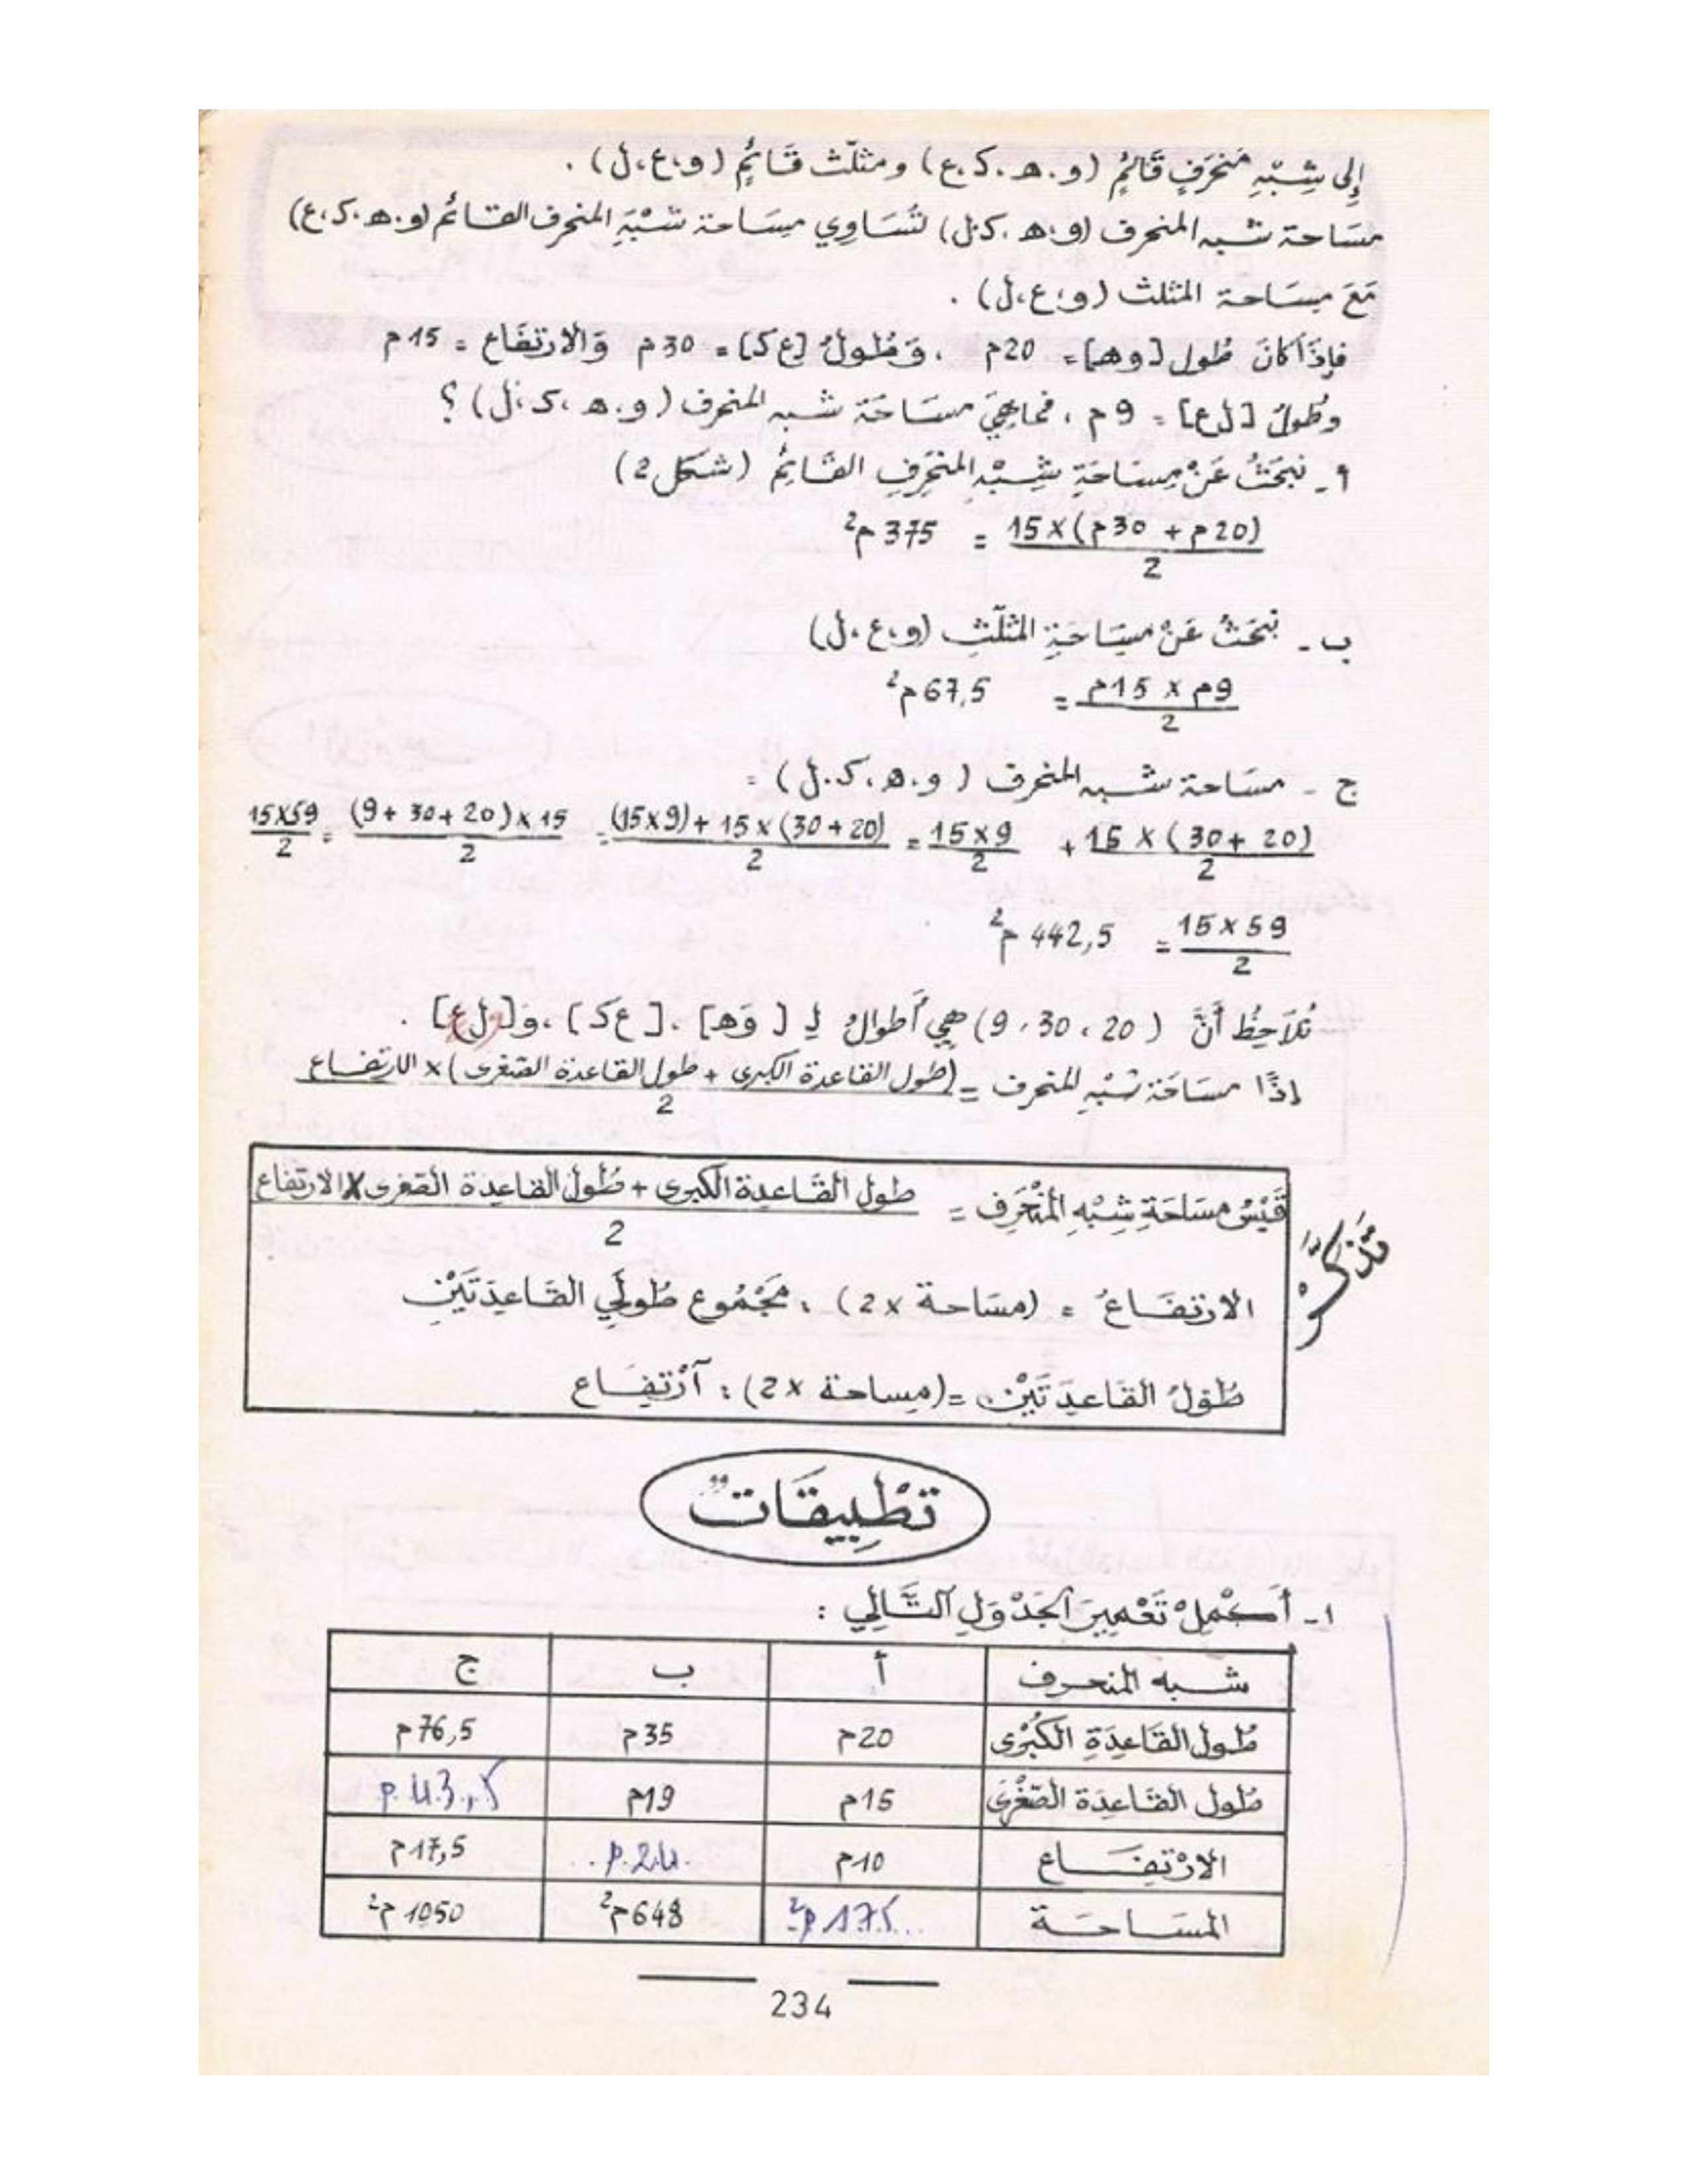 إلى شِبْهِ مُنحَرِفٍ قَائِمٍ (و.ه.ك.ع) ومثلّث قَائِمٍ (و،ع،ل).
مسَاحة شبه المنحرف (و،ه.ك.ل) تُسَاوِي مسَاحة شبْهِ المنحرف القائم (و.ه.ك.ع)
مَعَ مسَاحة المثلث (و،ع،ل).
فإذَا كانَ طول [وه] = 20م ، وَطُولُ [ع ك] = 30م وَالارتفَاع = 15م
وطُولُ [ل ع] = 9م ، فماهِيَ مسَاحَة شبه المنحرف (و.ه.ك.ل)؟
أ - نبحَثُ عَنْ مِسَاحَةِ شِبْهِ المنحَرِفِ القَائِمِ (شكل 2)
(20م + 30م) × 15 / 2 = 375 م²
ب - نبحَثُ عَنْ مسَاحَةِ المثلّثِ (و،ع،ل)
9م × 15م / 2 = 67,5 م²
ج - مسَاحة شبه المنحرف (و.ه.ك.ل) =
(20 + 30) × 15 / 2 + 9×15 / 2 = (20+30) × 15 + (9×15) / 2 = 15 × (20+30+9) / 2 = 59×15 / 2
59×15 / 2 = 442,5 م²
نُلاَحِظُ أَنَّ (20، 30، 9) هِيَ أَطوالُ لِـ [وَه]، [ع ك]، وَ[ل ع].
إذًا مسَاحَة شبْهِ المنحرف = (طول القاعدة الكبرى + طول القاعدة الصّغرى) × الارتفاع / 2
تذكّر
قَيْسُ مسَاحَةِ شِبْهِ المُنْحَرِف = طول القَاعِدة الكبرى + طُول القاعدة الصّغرى × الارتفاع / 2
الارتفَاعُ = (مسَاحة × 2) : مَجْمُوع طُولَيِ القَاعِدَتَيْنِ
طُولُ القَاعِدَتَيْنِ = (مساحة × 2) : آرْتِفَاع
تَطْبِيقَاتٌ
1 - أَكْمِلْ تَعْمِيرَ الجَدْوَلِ التَّالِي :
شبه المنحرف أ ب ج
طُول القَاعِدَةِ الكُبْرَى 20م 35م 76,5م
طُول القَاعِدَة الصّغْرَى 15م 19م 43,5 م
الارْتِفَاع 10م 24 م 17,5م
المسَاحَة 175 م² 648م² 1050 م²
234